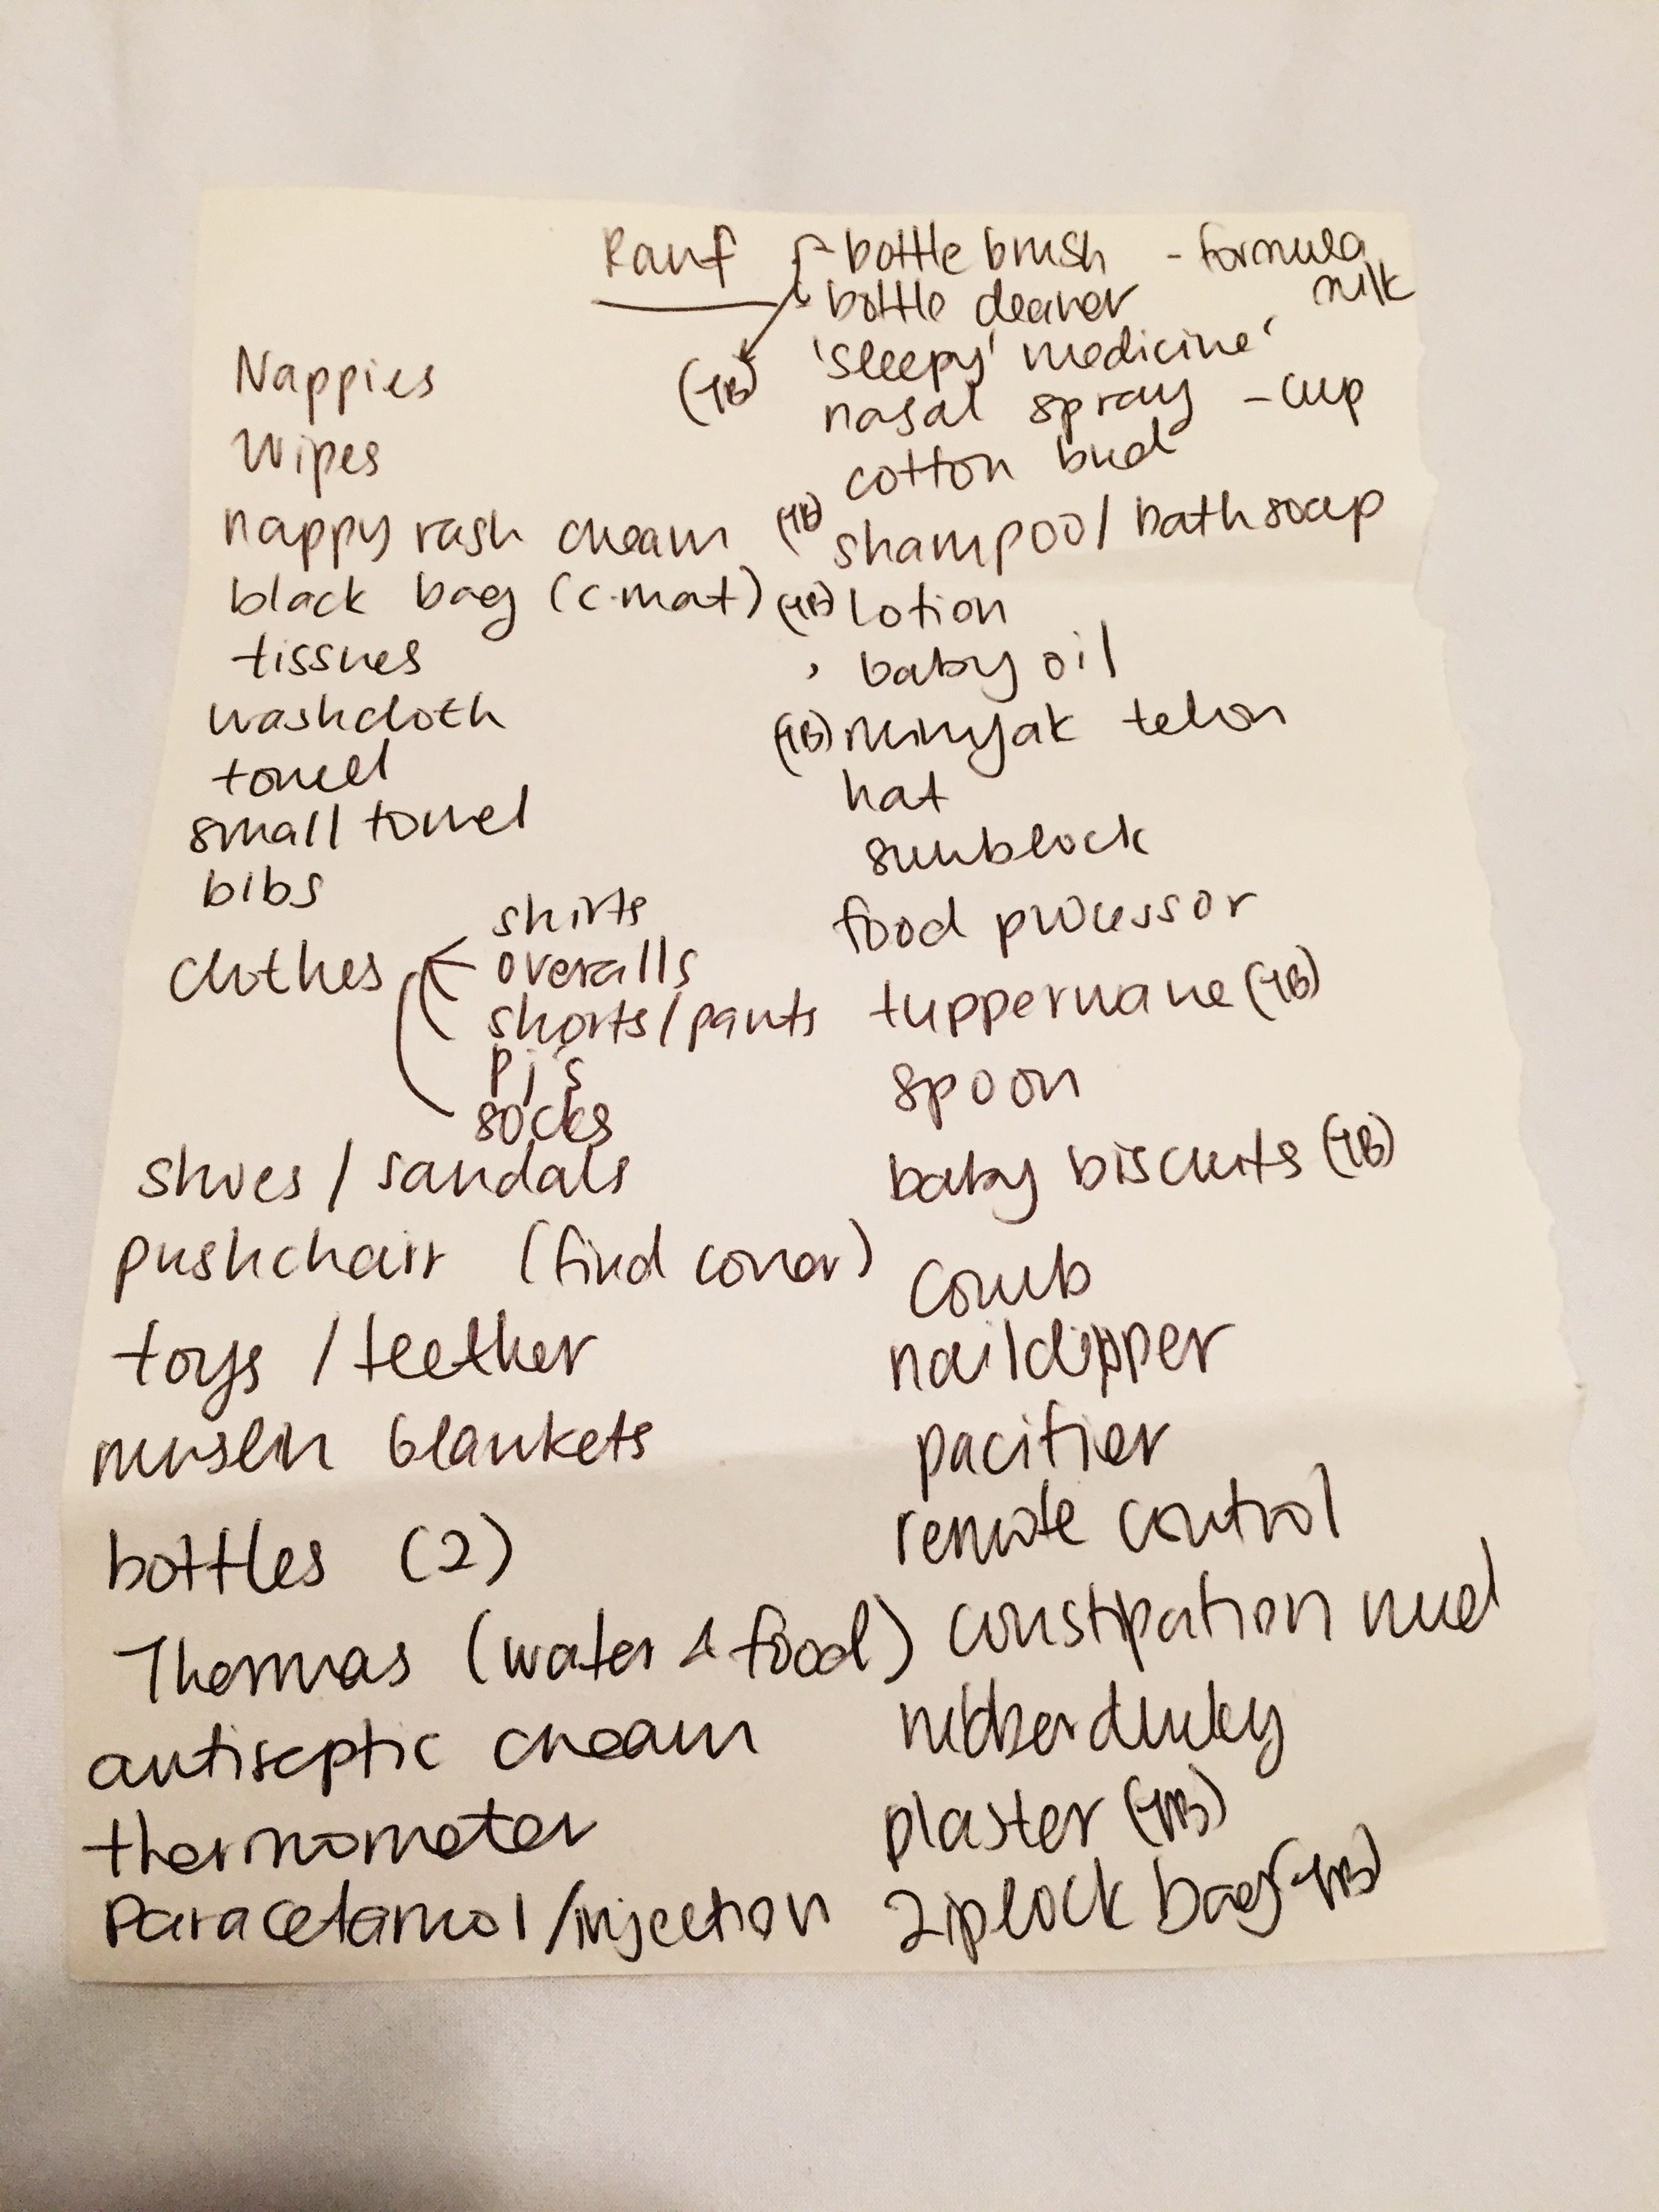 Rauf
Nappies
Wipes
nappy rash cream
black bag (c.mat)
tissues
washcloth
towel
small towel
bibs
clothes
shirts
overalls
shorts/pants
pj's
socks
shoes / sandals
pushchair (find cover)
toys / teether
muslin blankets
bottles (2)
Thermas (water & food)
antiseptic cream
thermometer
Paracetamol/injection
- bottle brush - formula milk
- bottle cleaner
(TB) 'sleepy' medicine'
nasal spray - cup
cotton bud
(TB) shampoo/bath soap
(TB) lotion
baby oil
(TB) minyak telon
hat
sunblock
food processor
tupperware (TB)
spoon
baby biscuits (TB)
comb
nail clipper
pacifier
remote control
constipation med
rubber ducky
plaster (TB)
ziplock bag (TB)